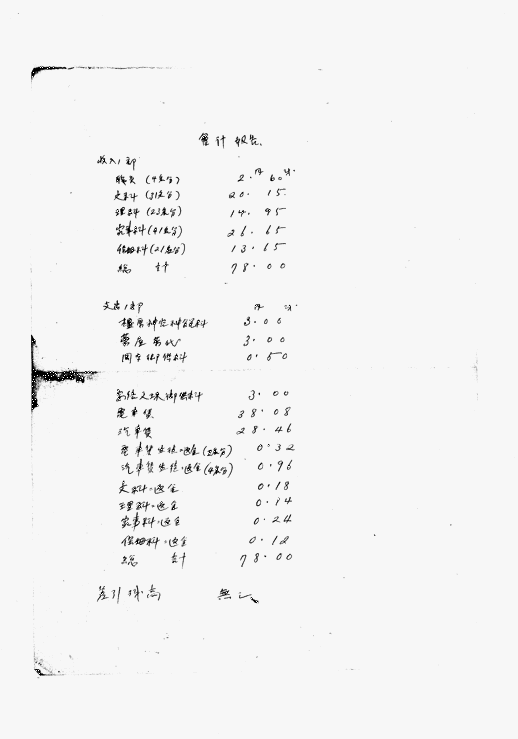 會計報告
収入ノ部
円 銭
職員 (4名分) 2.60
文科 (31名分) 20.15
理科 (23名分) 14.95
家事科 (41名分) 26.65
保姆科 (21名分) 13.65
総計 78.00
支出ノ部
円 銭
橿原神宮神饌料 3.00
3.00
御供料 0.50
御供料 3.00
電車賃 38.08
汽車賃 28.46
電車賃 返金 (2名分) 0.32
汽車賃 返金 (4名分) 0.96
文科ヘ返金 0.18
理科ヘ返金 0.14
家事科ヘ返金 0.24
保姆科ヘ返金 0.12
総計 78.00
差引残高 無シ